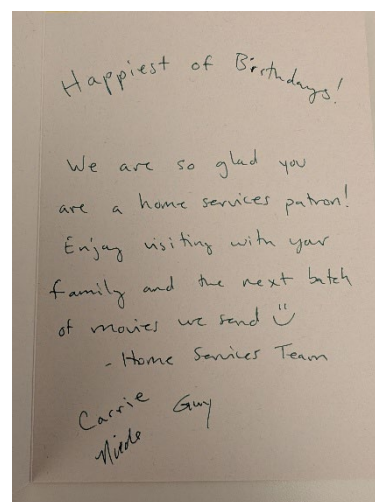 Happiest of Birthdays!
We are so glad you
are a home services patron!
Enjoy visiting with your
family and the next batch
of movies we send
- Home Services Team
Carrie Guy